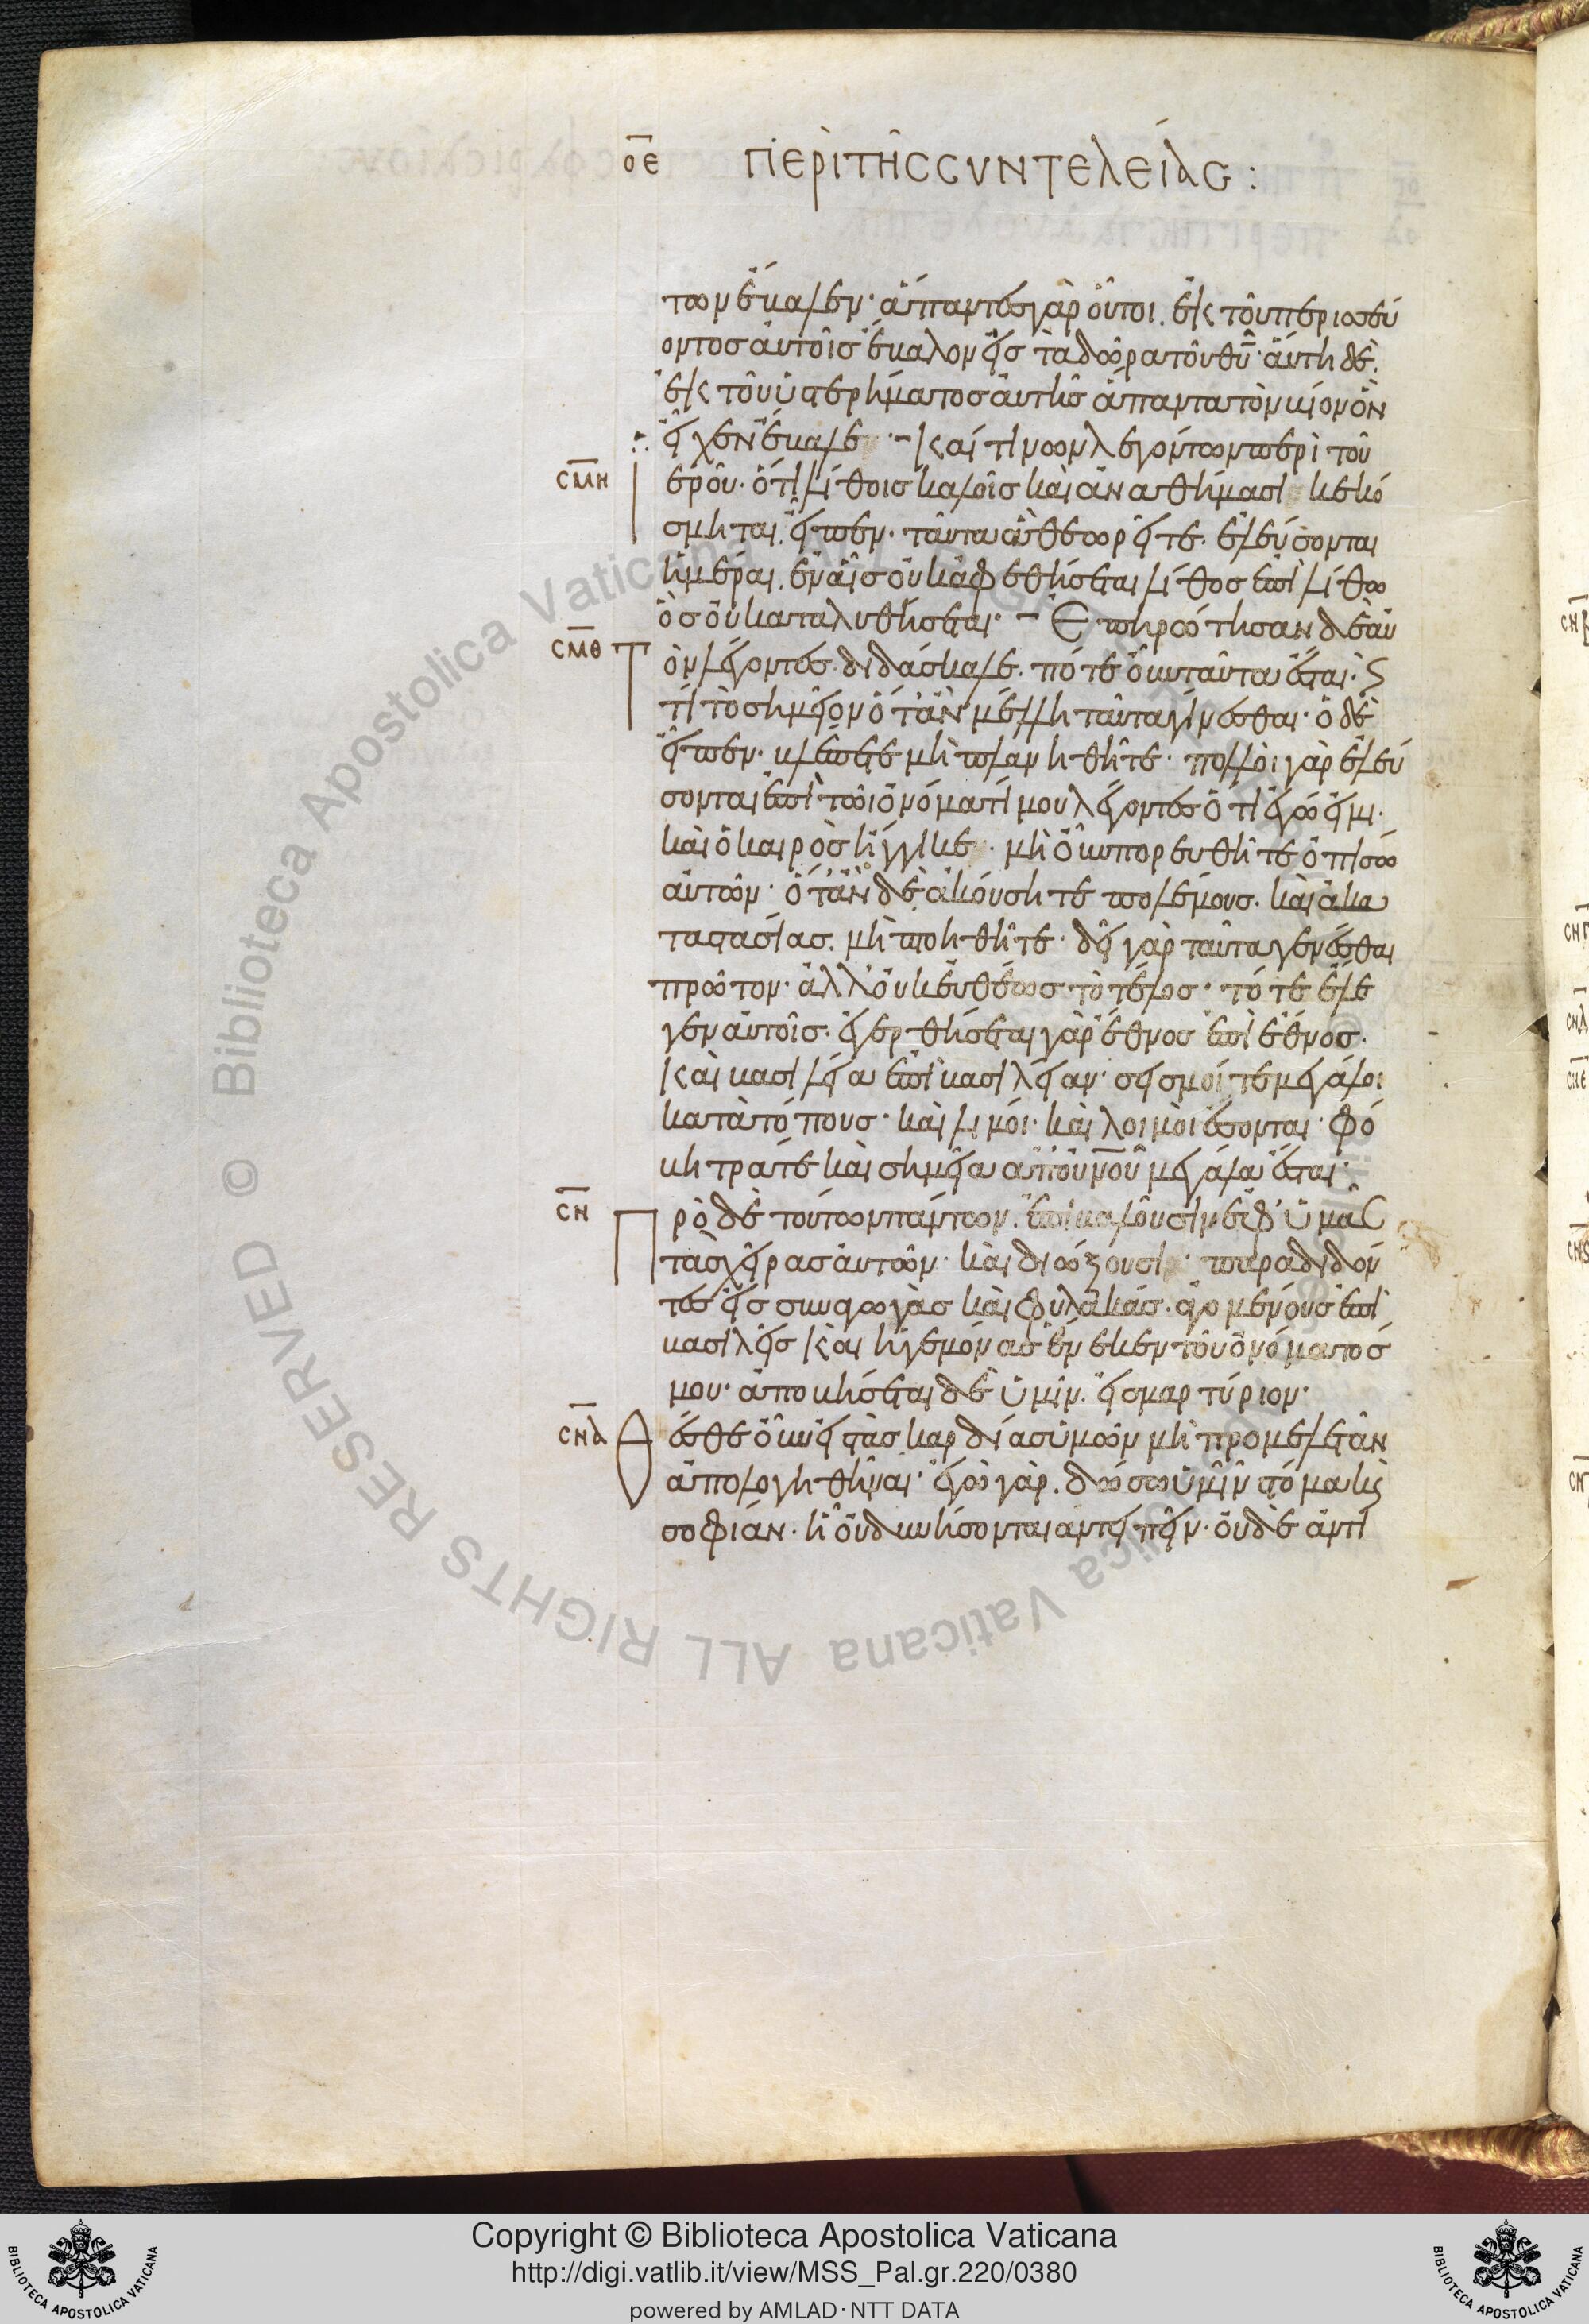 ο̅ε̅ περὶ τῆς συντελείας:
των ἔβαλεν· ἅπαντες γὰρ οὗτοι. ἐκ τοῦ περισσεύ
οντος αὐτοῖς ἔβαλον εἰς τὰ δῶρα τοῦ θ̅υ̅· αὕτη δὲ.
ἐκ τοῦ ὑστερήματος αὐτῆς ἅπαντα τὸν βίον ὃν
εἶχεν ἔβαλε· καί τινων λεγόντων περὶ τοῦ
σ̅μ̅η̅ ἱεροῦ· ὅτι λίθοις καλοῖς καὶ ἀναθήμασι κεκό
σμηται. εἶπεν· ταῦτα ἃ θεωρεῖτε. ἐλεύσονται
ἡμέραι. ἐν αἷς οὐκ ἀφεθήσεται λίθος ἐπὶ λίθω
ὃς οὐ καταλυθήσεται· Ἐπηρώτησαν δὲ αὐ
σ̅μ̅θ̅ τὸν λέγοντες. διδάσκαλε. πότε οὖν ταῦτα ἔσται· ϛ
τί τὸ σημεῖον ὅταν μέλλη ταῦτα γίνεσθαι· ὁ δὲ
εἶπεν· βλέπετε μὴ πλανηθῆτε· πολλοὶ γὰρ ἐλεύ
σονται ἐπὶ τῶι ὀνόματί μου λέγοντες ὅτι ἐγώ εἰμι.
καὶ ὁ καιρὸς ἤγγικε· μὴ οὖν πορευθῆτε ὀπίσω
αὐτῶν· ὅταν δὲ ἀκούσητε πολέμους. καὶ ἀκα
ταστασίας. μὴ πτοηθῆτε· δεῖ γὰρ ταῦτα γενέσθαι
πρῶτον· ἀλλ' οὐκ εὐθέως τὸ τέλος· τότε ἔλε
γεν αὐτοῖς. ἐγερθήσεται γὰρ ἔθνος ἐπὶ ἔθνος.
καὶ βασιλεία ἐπὶ βασιλείαν· σεισμοί τε μεγάλοι
κατὰ τόπους· καὶ λιμοί· καὶ λοιμοὶ ἔσονται· φό
βητρά τε καὶ σημεῖα ἀπ' ο̅υ̅ν̅ο̅υ̅ μεγάλα ἔσται·
σ̅ν̅ Πρὸ δὲ τούτων πάντων. ἐπιβαλοῦσιν ἐφ' ὑμᾶς
τὰς χεῖρας αὐτῶν· καὶ διώξουσι· παραδιδόν
τες εἰς συναγωγὰς καὶ φυλακάς. ἀγομένους ἐπὶ
βασιλεῖς καὶ ἡγεμόνας ἕνεκεν τοῦ ὀνόματός
μου· ἀποβήσεται δὲ ὑμῖν. εἰς μαρτύριον·
σ̅ν̅α̅ Θέσθε οὖν εἰς τὰς καρδίας ὑμῶν μὴ προμελετᾶν
ἀπολογηθῆναι· ἐγὼ γὰρ. δώσω ὑμῖν στόμα καὶ
σοφίαν· ἧ οὐ δυνήσονται ἀντειπεῖν· οὐδὲ ἀντι
Copyright © Biblioteca Apostolica Vaticana
http://digi.vatlib.it/view/MSS_Pal.gr.220/0380
powered by AMLAD·NTT DATA
BIBLIOTECA APOSTOLICA VATICANA
BIBLIOTECA APOSTOLICA VATICANA
© Biblioteca Apostolica Vaticana ALL RIGHTS RESERVED